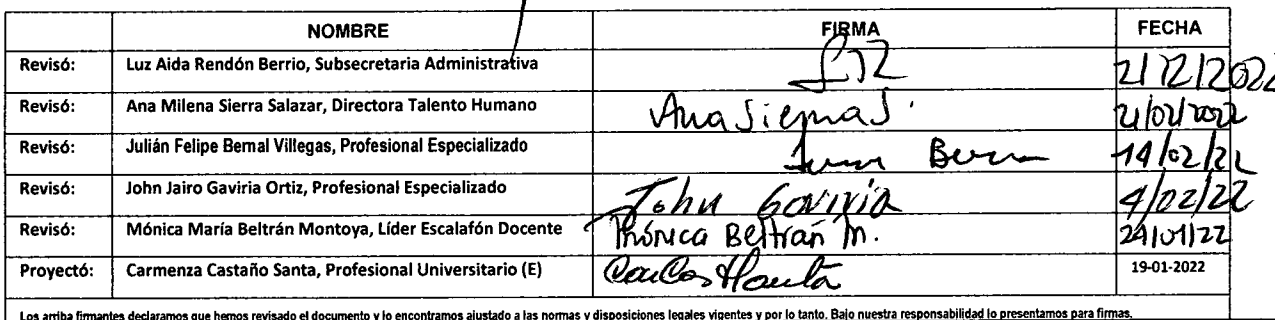 NOMBRE FIRMA FECHA
Revisó: Luz Aida Rendón Berrio, Subsecretaria Administrativa
Revisó: Ana Milena Sierra Salazar, Directora Talento Humano Ana Sierra S. 21/02/2022
Revisó: Julián Felipe Bernal Villegas, Profesional Especializado 14/02/22
Revisó: John Jairo Gaviria Ortiz, Profesional Especializado John Gaviria 4/02/22
Revisó: Mónica María Beltrán Montoya, Líder Escalafón Docente Mónica Beltrán M. 24/01/22
Proyectó: Carmenza Castaño Santa, Profesional Universitario (E) 19-01-2022
Los arriba firmantes declaramos que hemos revisado el documento y lo encontramos ajustado a las normas y disposiciones legales vigentes y por lo tanto. Bajo nuestra responsabilidad lo presentamos para firmas.